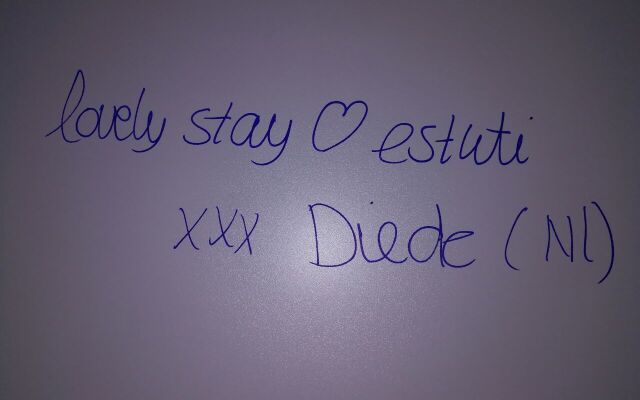 lovely stay ♡ estuti
xxx Diede (Nl)